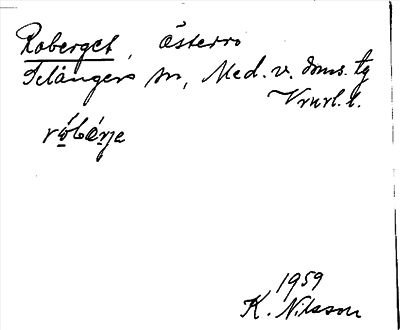 Roberget, Österro
Selångers sn, Med. v. doms. tg
Vrnrl. l.
rób́ärje
1959
K. Nilsson